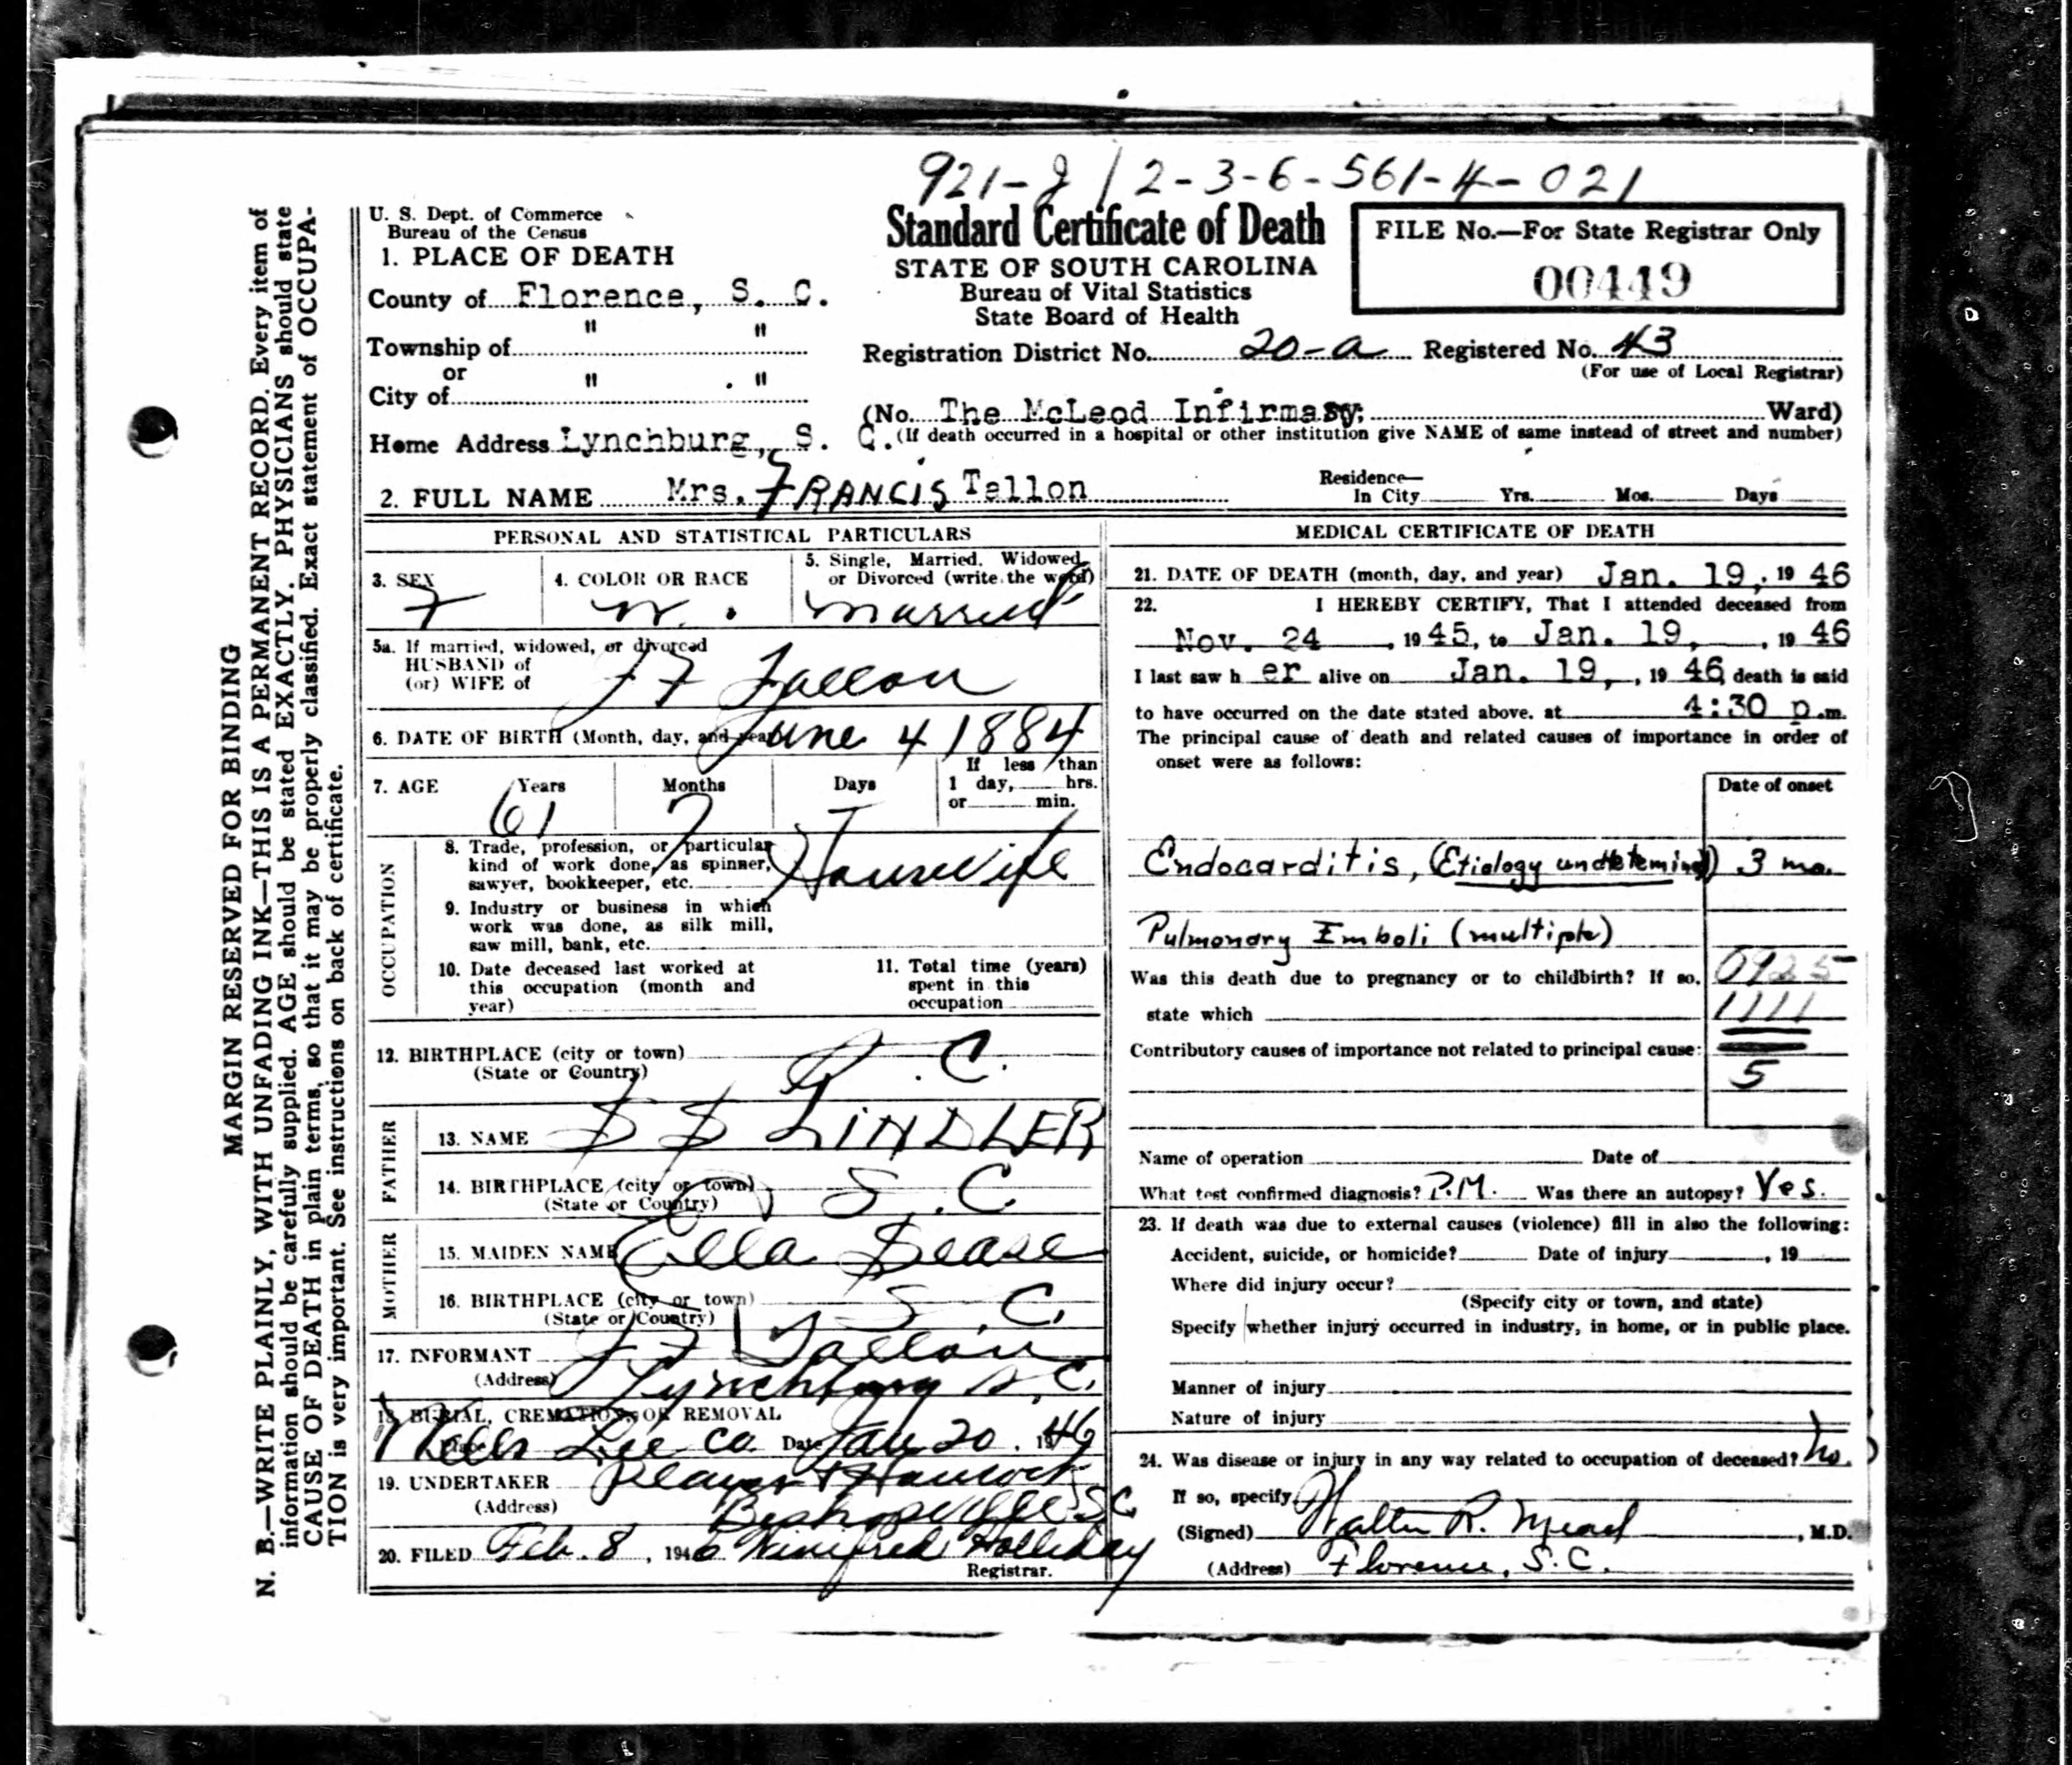 921-8 / 2-3-6-561-4-021
U. S. Dept. of Commerce
Bureau of the Census
Standard Certificate of Death
STATE OF SOUTH CAROLINA
Bureau of Vital Statistics
State Board of Health
FILE No.—For State Registrar Only
00449
1. PLACE OF DEATH
County of Florence, S. C.
Township of " "
or
City of " "
Home Address Lynchburg, S. C.
Registration District No. 20-a Registered No. 43
(For use of Local Registrar)
(No. The McLeod Infirmary; Ward)
(If death occurred in a hospital or other institution give NAME of same instead of street and number)
2. FULL NAME Mrs. FRANCIS Tallon
Residence—
In City Yrs. Mos. Days
PERSONAL AND STATISTICAL PARTICULARS
3. SEX
F
4. COLOR OR RACE
W.
5. Single, Married, Widowed,
or Divorced (write the word)
Married
5a. If married, widowed, or divorced
HUSBAND of
(or) WIFE of
Tallon
6. DATE OF BIRTH (Month, day, and year) June 4 1884
7. AGE Years Months Days If less than
1 day, hrs.
or min.
61 7
OCCUPATION
8. Trade, profession, or particular
kind of work done, as spinner,
sawyer, bookkeeper, etc.
Housewife
9. Industry or business in which
work was done, as silk mill,
saw mill, bank, etc.
10. Date deceased last worked at
this occupation (month and
year)
11. Total time (years)
spent in this
occupation
12. BIRTHPLACE (city or town)
(State or Country)
S. C.
FATHER
13. NAME S S LINDLER
14. BIRTHPLACE (city or town)
(State or Country)
S. C.
MOTHER
15. MAIDEN NAME Ella Sease
16. BIRTHPLACE (city or town)
(State or Country)
S. C.
17. INFORMANT Tallon
(Address) Lynchburg S. C.
18. BURIAL, CREMATION, OR REMOVAL
Lee Co. Date Jan 20, 1946
19. UNDERTAKER Hancock
(Address) Bishopville S C
20. FILED Feb. 8, 1946 Winifred Holliday
Registrar.
MEDICAL CERTIFICATE OF DEATH
21. DATE OF DEATH (month, day, and year) Jan. 19, 19 46
22. I HEREBY CERTIFY, That I attended deceased from
Nov. 24, 19 45, to Jan. 19, , 19 46
I last saw h er alive on Jan. 19, , 19 46, death is said
to have occurred on the date stated above, at 4:30 p.m.
The principal cause of death and related causes of importance in order of
onset were as follows:
Date of onset
Endocarditis, (Etiology undetermined) 3 mo.
Pulmonary Emboli (multiple)
Was this death due to pregnancy or to childbirth? If so,
state which
0925
1111
Contributory causes of importance not related to principal cause:
5
Name of operation Date of
What test confirmed diagnosis? P.M. Was there an autopsy? Yes.
23. If death was due to external causes (violence) fill in also the following:
Accident, suicide, or homicide? Date of injury , 19
Where did injury occur?
(Specify city or town, and state)
Specify whether injury occurred in industry, in home, or in public place.
Manner of injury
Nature of injury
24. Was disease or injury in any way related to occupation of deceased? No.
If so, specify
(Signed) Walter R. Mead, M.D.
(Address) Florence, S.C.
MARGIN RESERVED FOR BINDING
N. B.—WRITE PLAINLY, WITH UNFADING INK—THIS IS A PERMANENT RECORD. Every item of
information should be carefully supplied. AGE should be stated EXACTLY. PHYSICIANS should state
CAUSE OF DEATH in plain terms, so that it may be properly classified. Exact statement of OCCUPA-
TION is very important. See instructions on back of certificate.